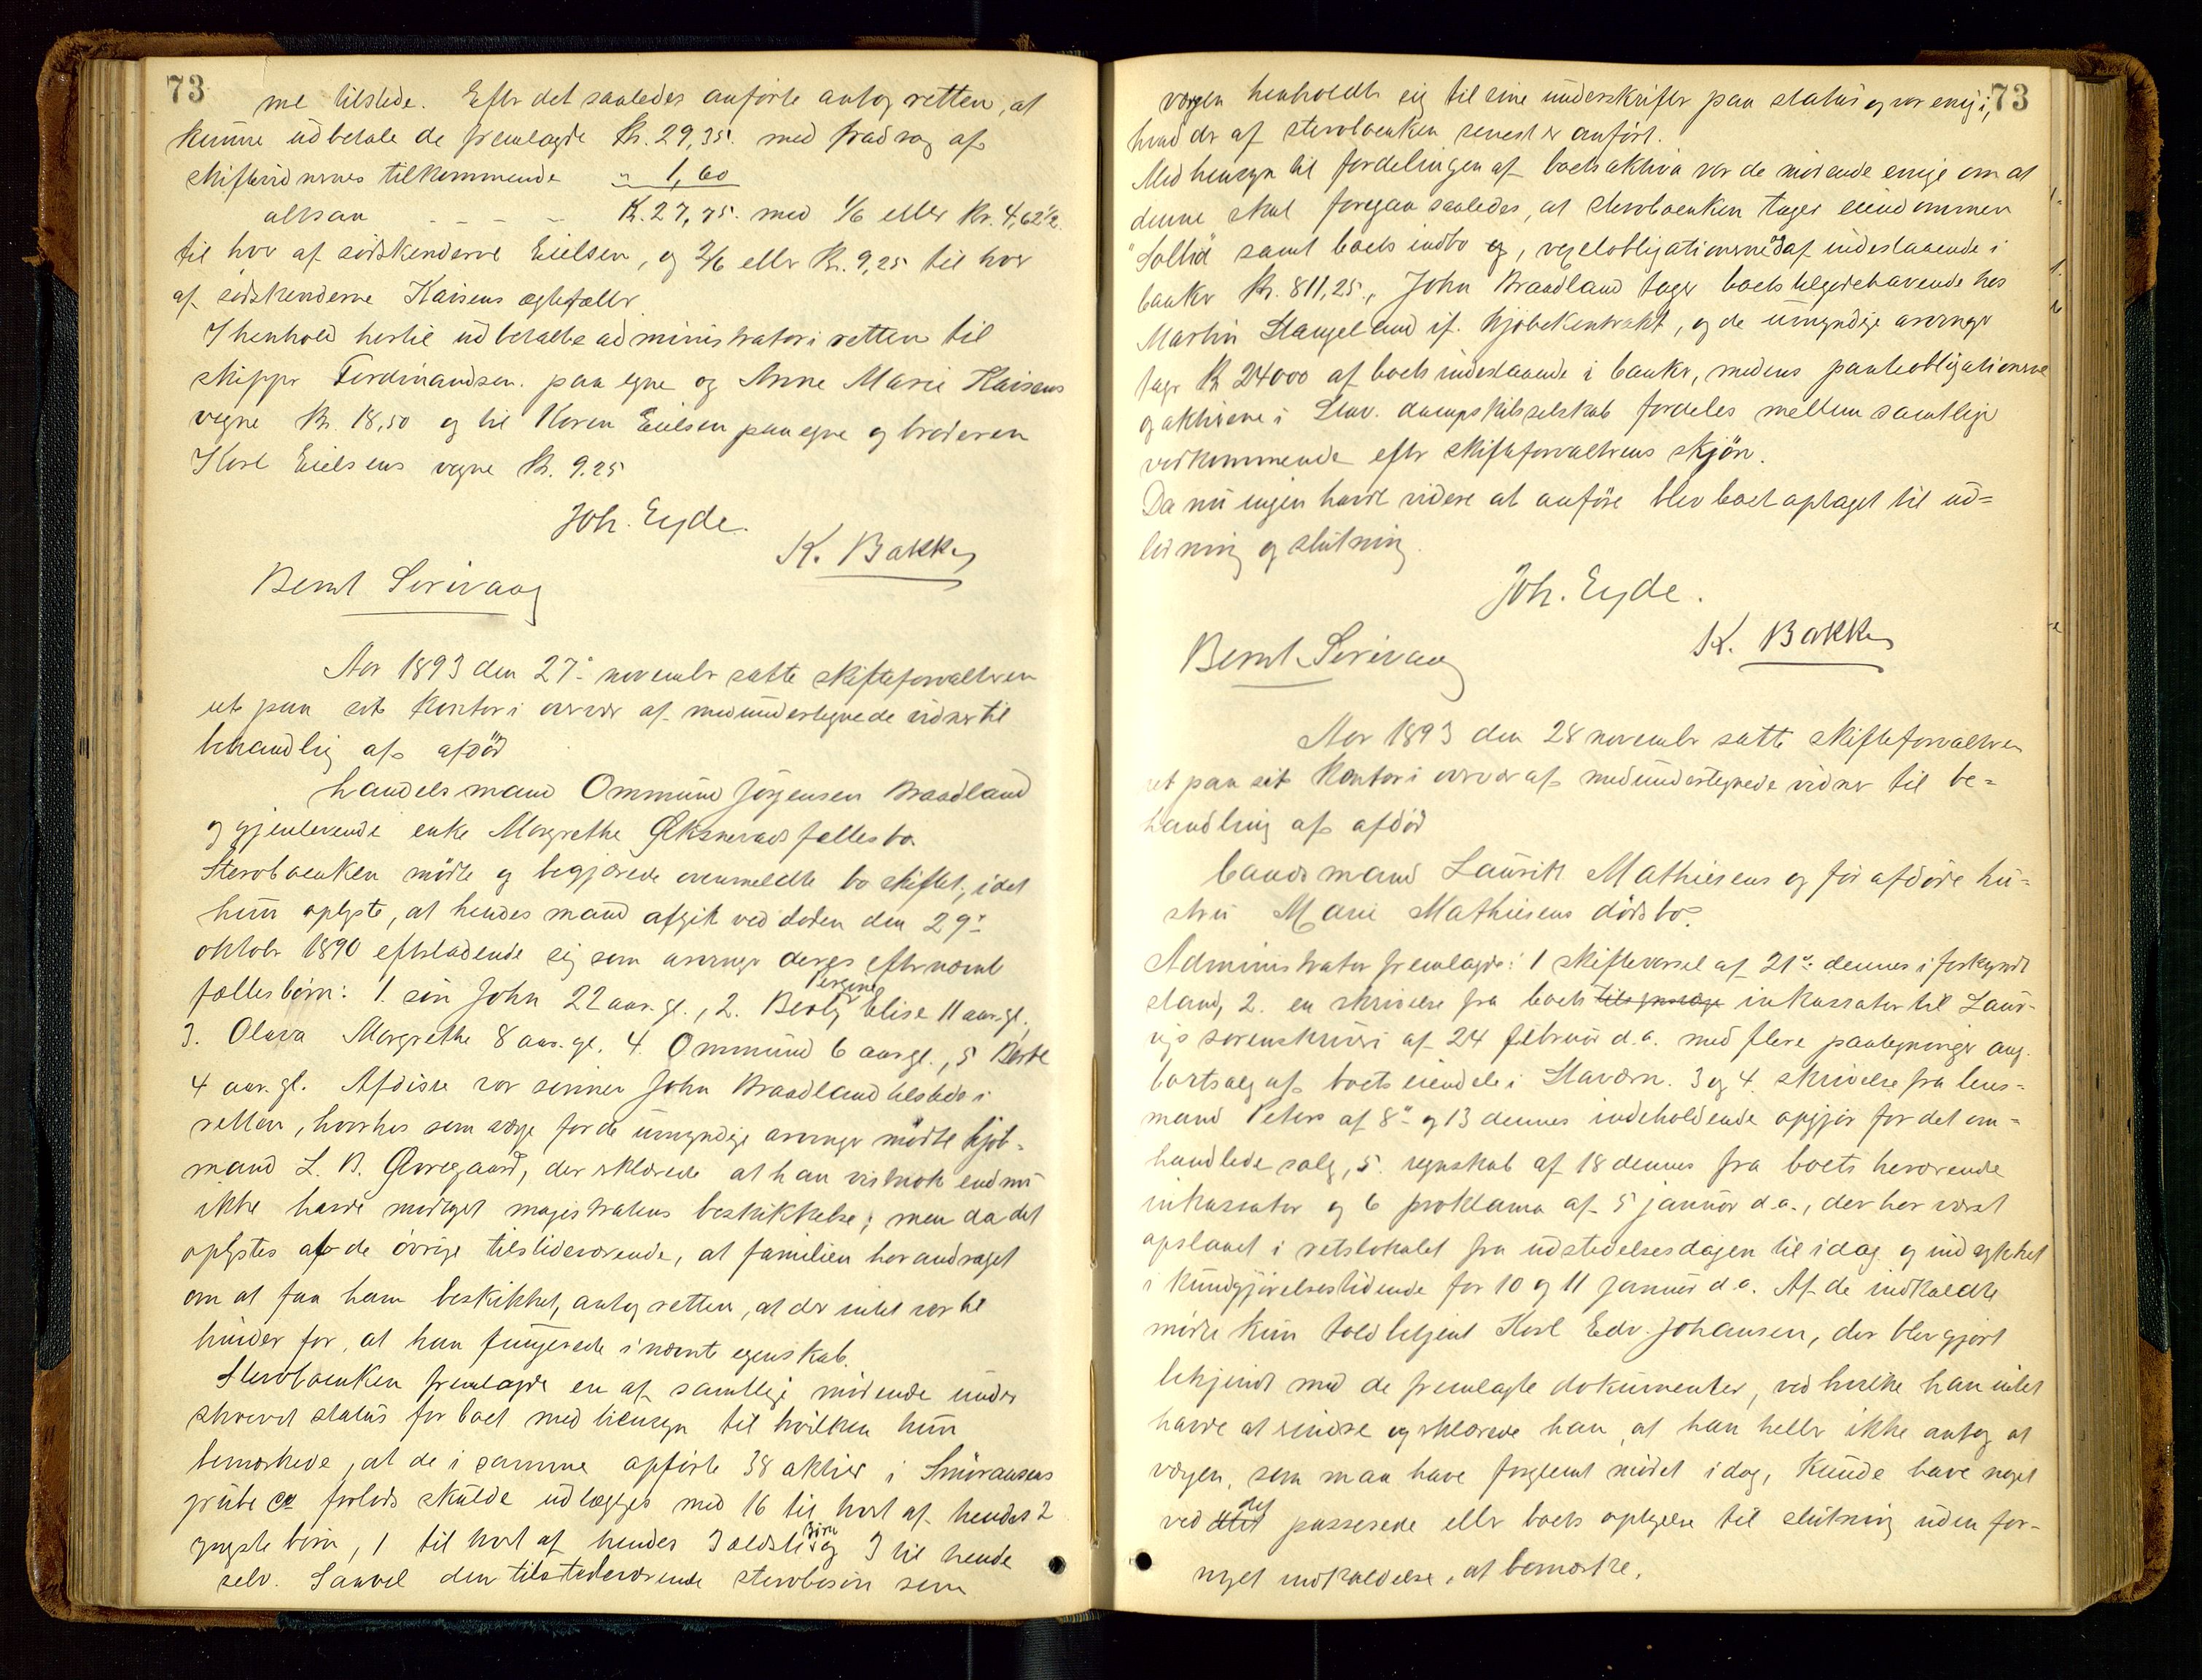 73
me tilstede. Efter det saaledes anførte antog retten, at
kunne udbetale de fremlagte Kr. 29,35. med fradrag af
skiftevidnernes tilkommende " 1,60
altsaa - - - - Kr. 27,75. med 1/6 eller Kr. 4,62 1/2.
til hver af sødskenderne Eielsen, og 2/6 eller Kr. 9,25 til hver
af sødskenderne Kaisens ægtefæller.
I henhold hertil udbetalte administrator i retten til
skipper Ferdinandsen paa egne og Anne Marie Kaisens
vegne Kr. 18,50 og til Karen Eielsen paa egne og broderen
Karl Eielsens vegne Kr. 9.25
Joh. Eyde.
K. Bakke
Bernt Sørivaag
Aar 1893 den 27de november satte skifteforvalteren
ret paa sit kontor i overvær af medundertegnede vidner til
behandlig af afdød
handelsmand Ommund Jørgensen Braadland
og gjenlevende enke Margrethe Øksnevads fællesbo
Stervboenken mødte og begjærede ovenmeldte bo skiftet, idet
hun oplyste, at hendes mand afgik ved døden den 29de
oktober 1890 efterladende sig som arvinger deres efternævnte
fællesbørn: 1. søn John 22 aar. gl., 2. Berty Pergine Elise 11 aar. gl.,
3. Olava Margrethe 8 aar. gl. 4. Ommund 6 aar gl., 5 Berte
4 aar. gl. Af disse var sønnen John Braadland tilstede i
retten, hvorhos som værge for de umyndige arvinger mødte kjøb-
mand L. B. Qvregaard, der erklærede at han vistnok endnu
ikke havde modtaget magistratens beskikkelse; men da det
oplystes af de øvrige tilstedeværende, at familien har andraget
om at faa ham beskikket, antog retten, at der intet var til
hinder for, at han fungerede i nævnte egenskab.
Stervboenken fremlagde en af samtlige mødende under
skrevet status for boet med hensyn til hvilken hun
bemærkede, at de i samme opførte 38 aktier i
grube Co forlods skulde udlægges med 16 til hvert af hendes 2
yngste børn, 1 til hvert af hendes 3 ældste Børn og 3 til hende
selv. Saavel den tilstedeværende stervbosøn som
73
værgen henholdt sig til sine underskrifter paa status og var enig i,
hvad der af stervboenken senest er anført.
Med hensyn til fordelingen af boets aktiva var de mødende enige om at
denne skal foregaa saaledes, at stervboenken tager eiendommen
"Solhid" samt boets indbo og, vexelobligationerne og af indestaaende i
banker Kr. 811,25, John Braadland tager boets tilgodehavende hos
Martin Stangeland if. kjøbekontrakt, og de umyndige arvinger
tager Kr 24000 af boets indestaaende i banker, medens panteobligationerne
og aktierne i Stav. dampskibsselskab fordeles mellem samtlige
vedkommende efter skifteforvalterens skjøn.
Da nu ingen havde videre at anføre blev boet optaget til ud-
lodning og slutning.
Joh. Eyde.
K. Bakke
Bernt Sørivaag
Aar 1893 den 28 november satte skifteforvalteren
ret paa sit kontor i overvær af medundertegnede vidner til be-
handling af afdød
baadsmand Laurits Mathiesens og før afdøde hu-
stru Marie Mathiesens dødsbo.
Administrator fremlagde: 1 skiftevarsel af 21de dennes i forkyndt
stand, 2. en skrivelse fra boets inkassator til Laur-
vigs sorenskriveri af 24 februar d.a. med flere paategninger ang.
bortsalg af boets eiendele i Stavern. 3 og 4. skrivelse fra lens-
mand Peters af 8de og 13 dennes indeholdende opgjør for det om-
handlede salg, 5. regnskab af 18 dennes fra boets herværende
inkassator og 6 proklama af 5 januar d.a., der har været
opslaaet i retslokalet fra udstedelsesdagen til idag og indrykket
i kundgjørelsestidende for 10 og 11 januar d.a. Af de indkaldte
mødte kun toldbetjent Karl Edv. Johansen, der blev gjort
bekjendt med de fremlagte dokumenter, ved hvilke han intet
havde at erindre og erklærede han, at han heller ikke antog at
værgen, som maa have forglemt mødet idag, kunde have noget
ved det passerede eller boets optagelse til slutning uden for-
nyet indkaldelse, at bemærke.